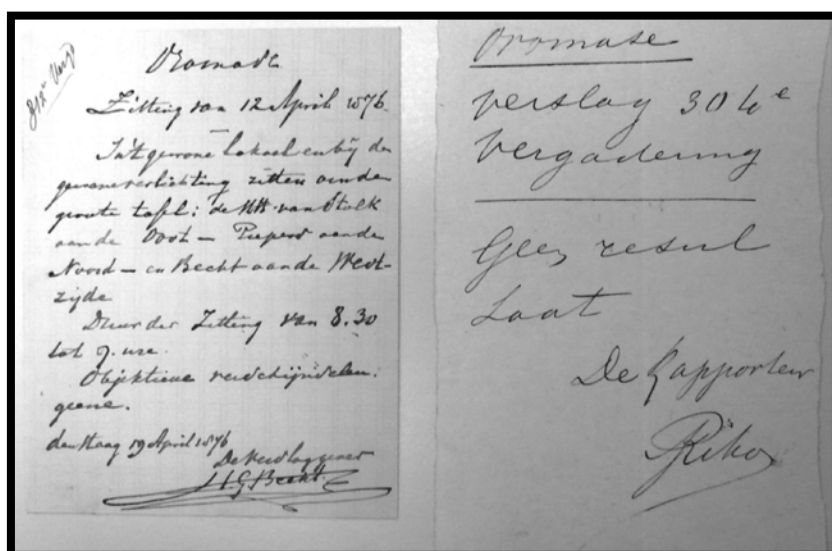 812e Verg
Oromase
Zitting van 12 April 1876.
In't gewone lokaal en bij de
gewone verlichting zitten om de
groote tafel: de HH. van Stolk
aan de Oost – Piepers aan de
Noord – en Becht aan de West-
zijde
Duur der Zitting van 8.30
tot 9. ure.
Objektieve verschijnselen:
geene.
den Haag 19 April 1876
De Verslaggever
H.G. Becht
Oromase
verslag 304e
vergadering
Geen resul
taat
De Rapporteur
Riko